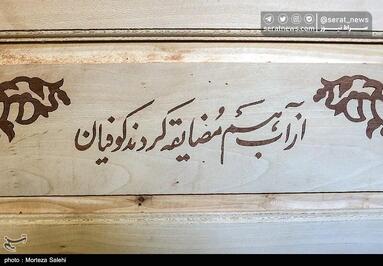 @serat_news
seratnews.com
از آب هم مُضایقه کردند کوفیان
photo : Morteza Salehi